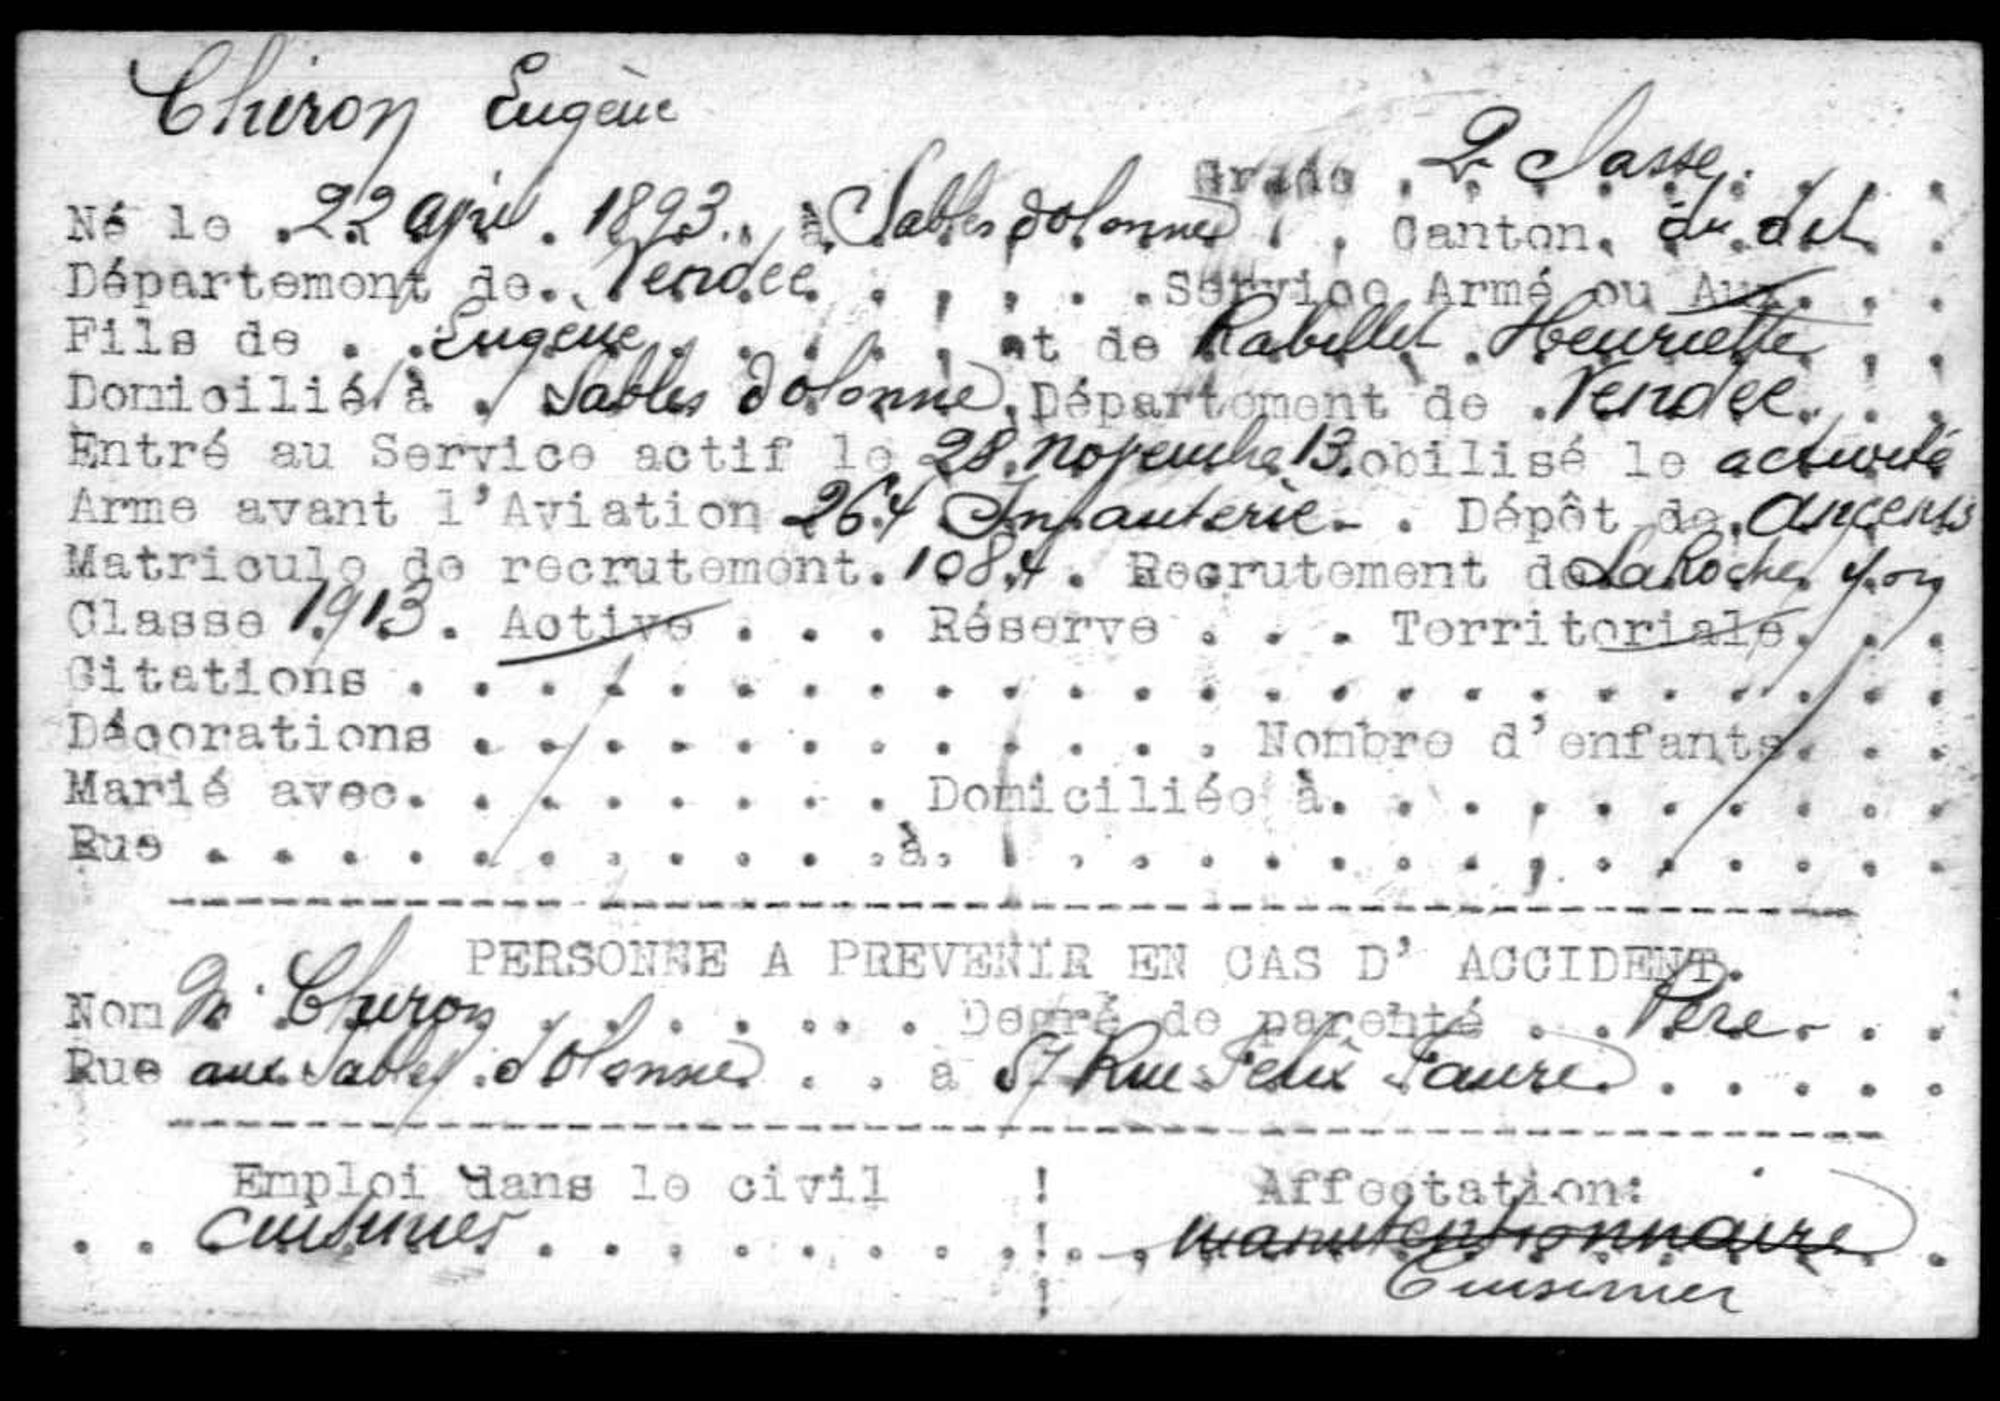 Chiron Eugène
Grade . 2e classe. . . .
Né le . 22 avril . 1893 . à Sables d'olonnes . . Canton. du dit .
Département de. Vendée . . . . . Service Armé ou Aux. . .
Fils de . . Eugène . . . . . et de Rabillet . Henriette . .
Domicilié à . Sables d'olonne, Département de . Vendée. . .
Entré au Service actif le 28. Novembre 13. obilisé le activité
Arme avant l'Aviation 264 Infanterie. . Dépôt de. Ancenis
Matricule de recrutement. 1084 . Recrutement de La Roche s/ yon
Classe 1913 . Active . . . Réserve . . . Territoriale. . .
Citations . . . . . . . . . . . . . . . . . . . . . . .
Décorations . . . . . . . . . . . . Nombre d'enfants. . .
Marié avec. . . . . . . . Domiciliée à. . . . . . . . . .
Rue . . . . . . . . . . . à. . . . . . . . . . . . . . .
PERSONNE A PREVENIR EN CAS D' ACCIDENT.
Nom Mr Chiron . . . . . . . Degré de parenté . . Père . . .
Rue aux Sables d'Olonnes . . a 57 Rue Felix Faure . . . . .
Emploi dans le civil ! Affectation:
. . cuisinier . . . . . . . . ! . . manutentionnaire .
! Cuisinier